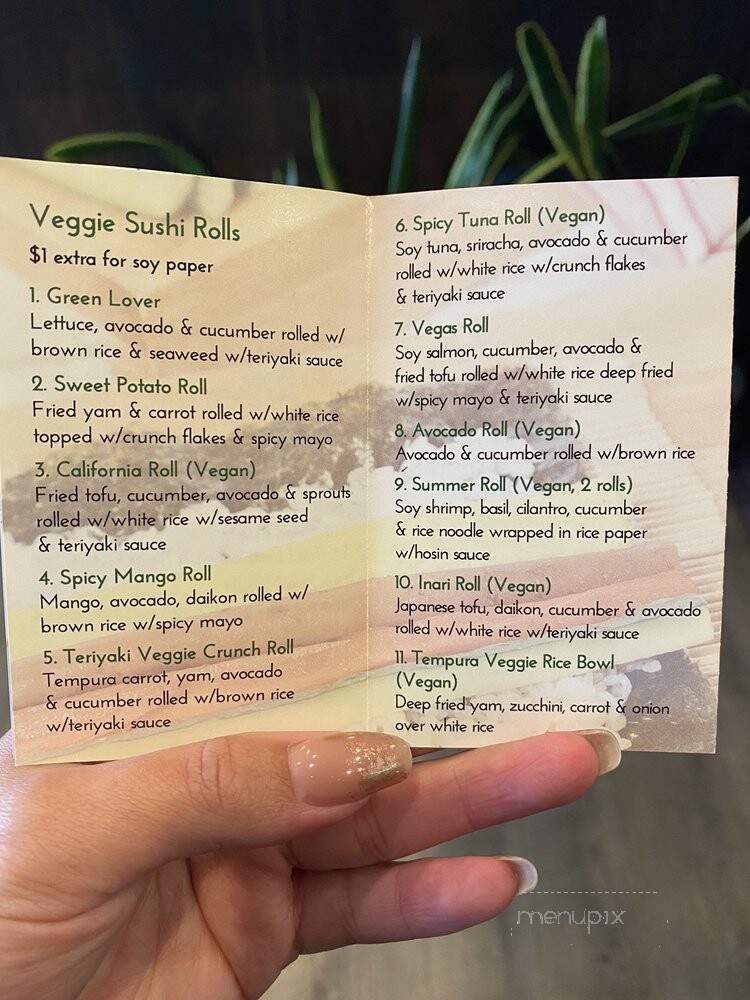 Veggie Sushi Rolls
$1 extra for soy paper
1. Green Lover
Lettuce, avocado & cucumber rolled w/
brown rice & seaweed w/teriyaki sauce
2. Sweet Potato Roll
Fried yam & carrot rolled w/white rice
topped w/crunch flakes & spicy mayo
3. California Roll (Vegan)
Fried tofu, cucumber, avocado & sprouts
rolled w/white rice w/sesame seed
& teriyaki sauce
4. Spicy Mango Roll
Mango, avocado, daikon rolled w/
brown rice w/spicy mayo
5. Teriyaki Veggie Crunch Roll
Tempura carrot, yam, avocado
& cucumber rolled w/brown rice
w/teriyaki sauce
6. Spicy Tuna Roll (Vegan)
Soy tuna, sriracha, avocado & cucumber
rolled w/white rice w/crunch flakes
& teriyaki sauce
7. Vegas Roll
Soy salmon, cucumber, avocado &
fried tofu rolled w/white rice deep fried
w/spicy mayo & teriyaki sauce
8. Avocado Roll (Vegan)
Avocado & cucumber rolled w/brown rice
9. Summer Roll (Vegan, 2 rolls)
Soy shrimp, basil, cilantro, cucumber
& rice noodle wrapped in rice paper
w/hosin sauce
10. Inari Roll (Vegan)
Japanese tofu, daikon, cucumber & avocado
rolled w/white rice w/teriyaki sauce
11. Tempura Veggie Rice Bowl
(Vegan)
Deep fried yam, zucchini, carrot & onion
over white rice
menupix